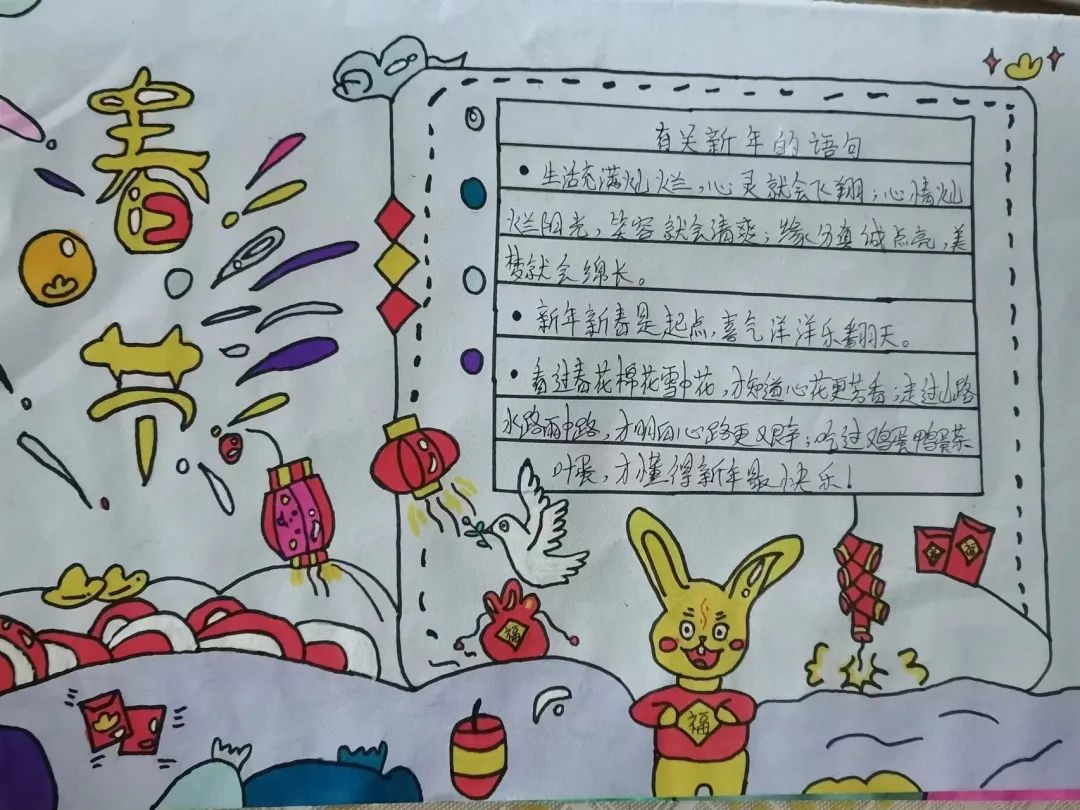 春
节
有关新年的语句
• 生活充满灿烂，心灵就会飞翔；心情灿
烂阳光，笑容就会清爽；缘分真诚点亮，美
梦就会绵长。
• 新年新春是起点，喜气洋洋乐翻天。
• 看过春花棉花雪中花，才知道心花更芳香；走过山路
水路雨中路，才明白心路更艰辛；吃过鸡蛋鸭蛋茶
叶蛋，才懂得新年最快乐！
福
福
福